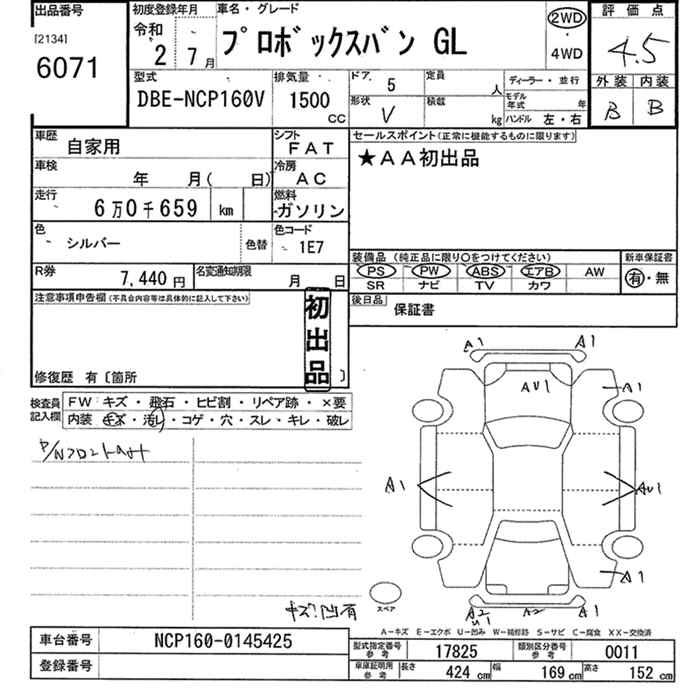 出品番号
[2134]
6071
初度登録年月
令和
2年 7月
車名・グレード
プロボックスバン GL
2WD
・
4WD
評価点
4.5
外装 内装
B B
型式
DBE-NCP160V
排気量
1500
CC
ドア 5
定員 人
形状 V
積載 kg
ディーラー・並行
モデル年式 年
ハンドル 左・右
車歴 自家用
シフト FAT
車検 年 月( 日)
冷房 AC
走行 6万0千659 km
燃料 ガソリン
色 シルバー 色替
色コード 1E7
R券 7,440円
名変通知期限 月 日
セールスポイント(正常に機能するものに限ります)
★AA初出品
装備品 (純正品に限り〇をつけてください) 新車保証書
PS PW ABS エアB AW
SR ナビ TV カワ
有・無
後日品 保証書
注意事項申告欄(不具合内容等は具体的に記入して下さい)
初出品
修復歴 有〔箇所 〕
検査員記入欄
FW キズ・飛石・ヒビ割・リペア跡・×要
内装 キズ・汚レ・コゲ・穴・スレ・キレ・破レ
キズ凹有
A1 A1
AU1
A1
A1 AU1
A1
A2 A2 A1
U1
スペア
A-キズ E-エクボ U-凹み W-補修跡 S-サビ C-腐食 XX-交換済
車台番号 NCP160-0145425
登録番号
型式指定番号参考 17825 類別区分番号参考 0011
車庫証明用参考 長さ 424 cm 幅 169 cm 高さ 152 cm